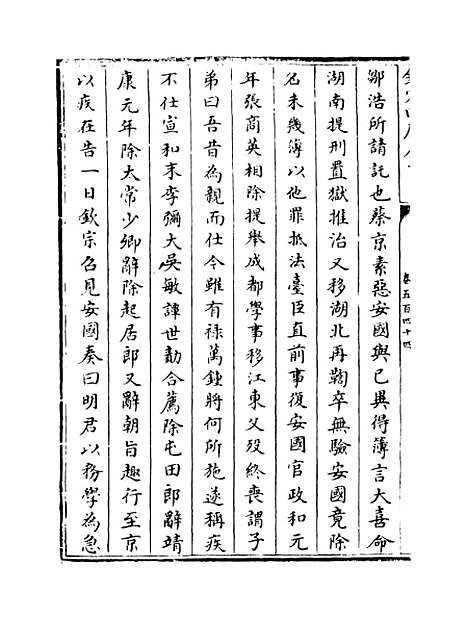 卷五百四十四
鄒浩所請託也蔡京素惡安國與已異得簿言大喜命
湖南提刑置獄推治又移湖北再鞫卒無驗安國竟除
名未幾簿以他罪抵法臺臣直前事復安國官政和元
年張商英相除提舉成都學事移江東父歿終喪謂子
弟曰吾昔為親而仕今雖有禄萬鍾將何所施遂稱疾
不仕宣和末李彌大吳敏譚世勣合薦除屯田郎辭靖
康元年除太常少卿辭除起居郎又辭朝旨趣行至京
以疾在告一日欽宗召見安國奏曰明君以務學為急